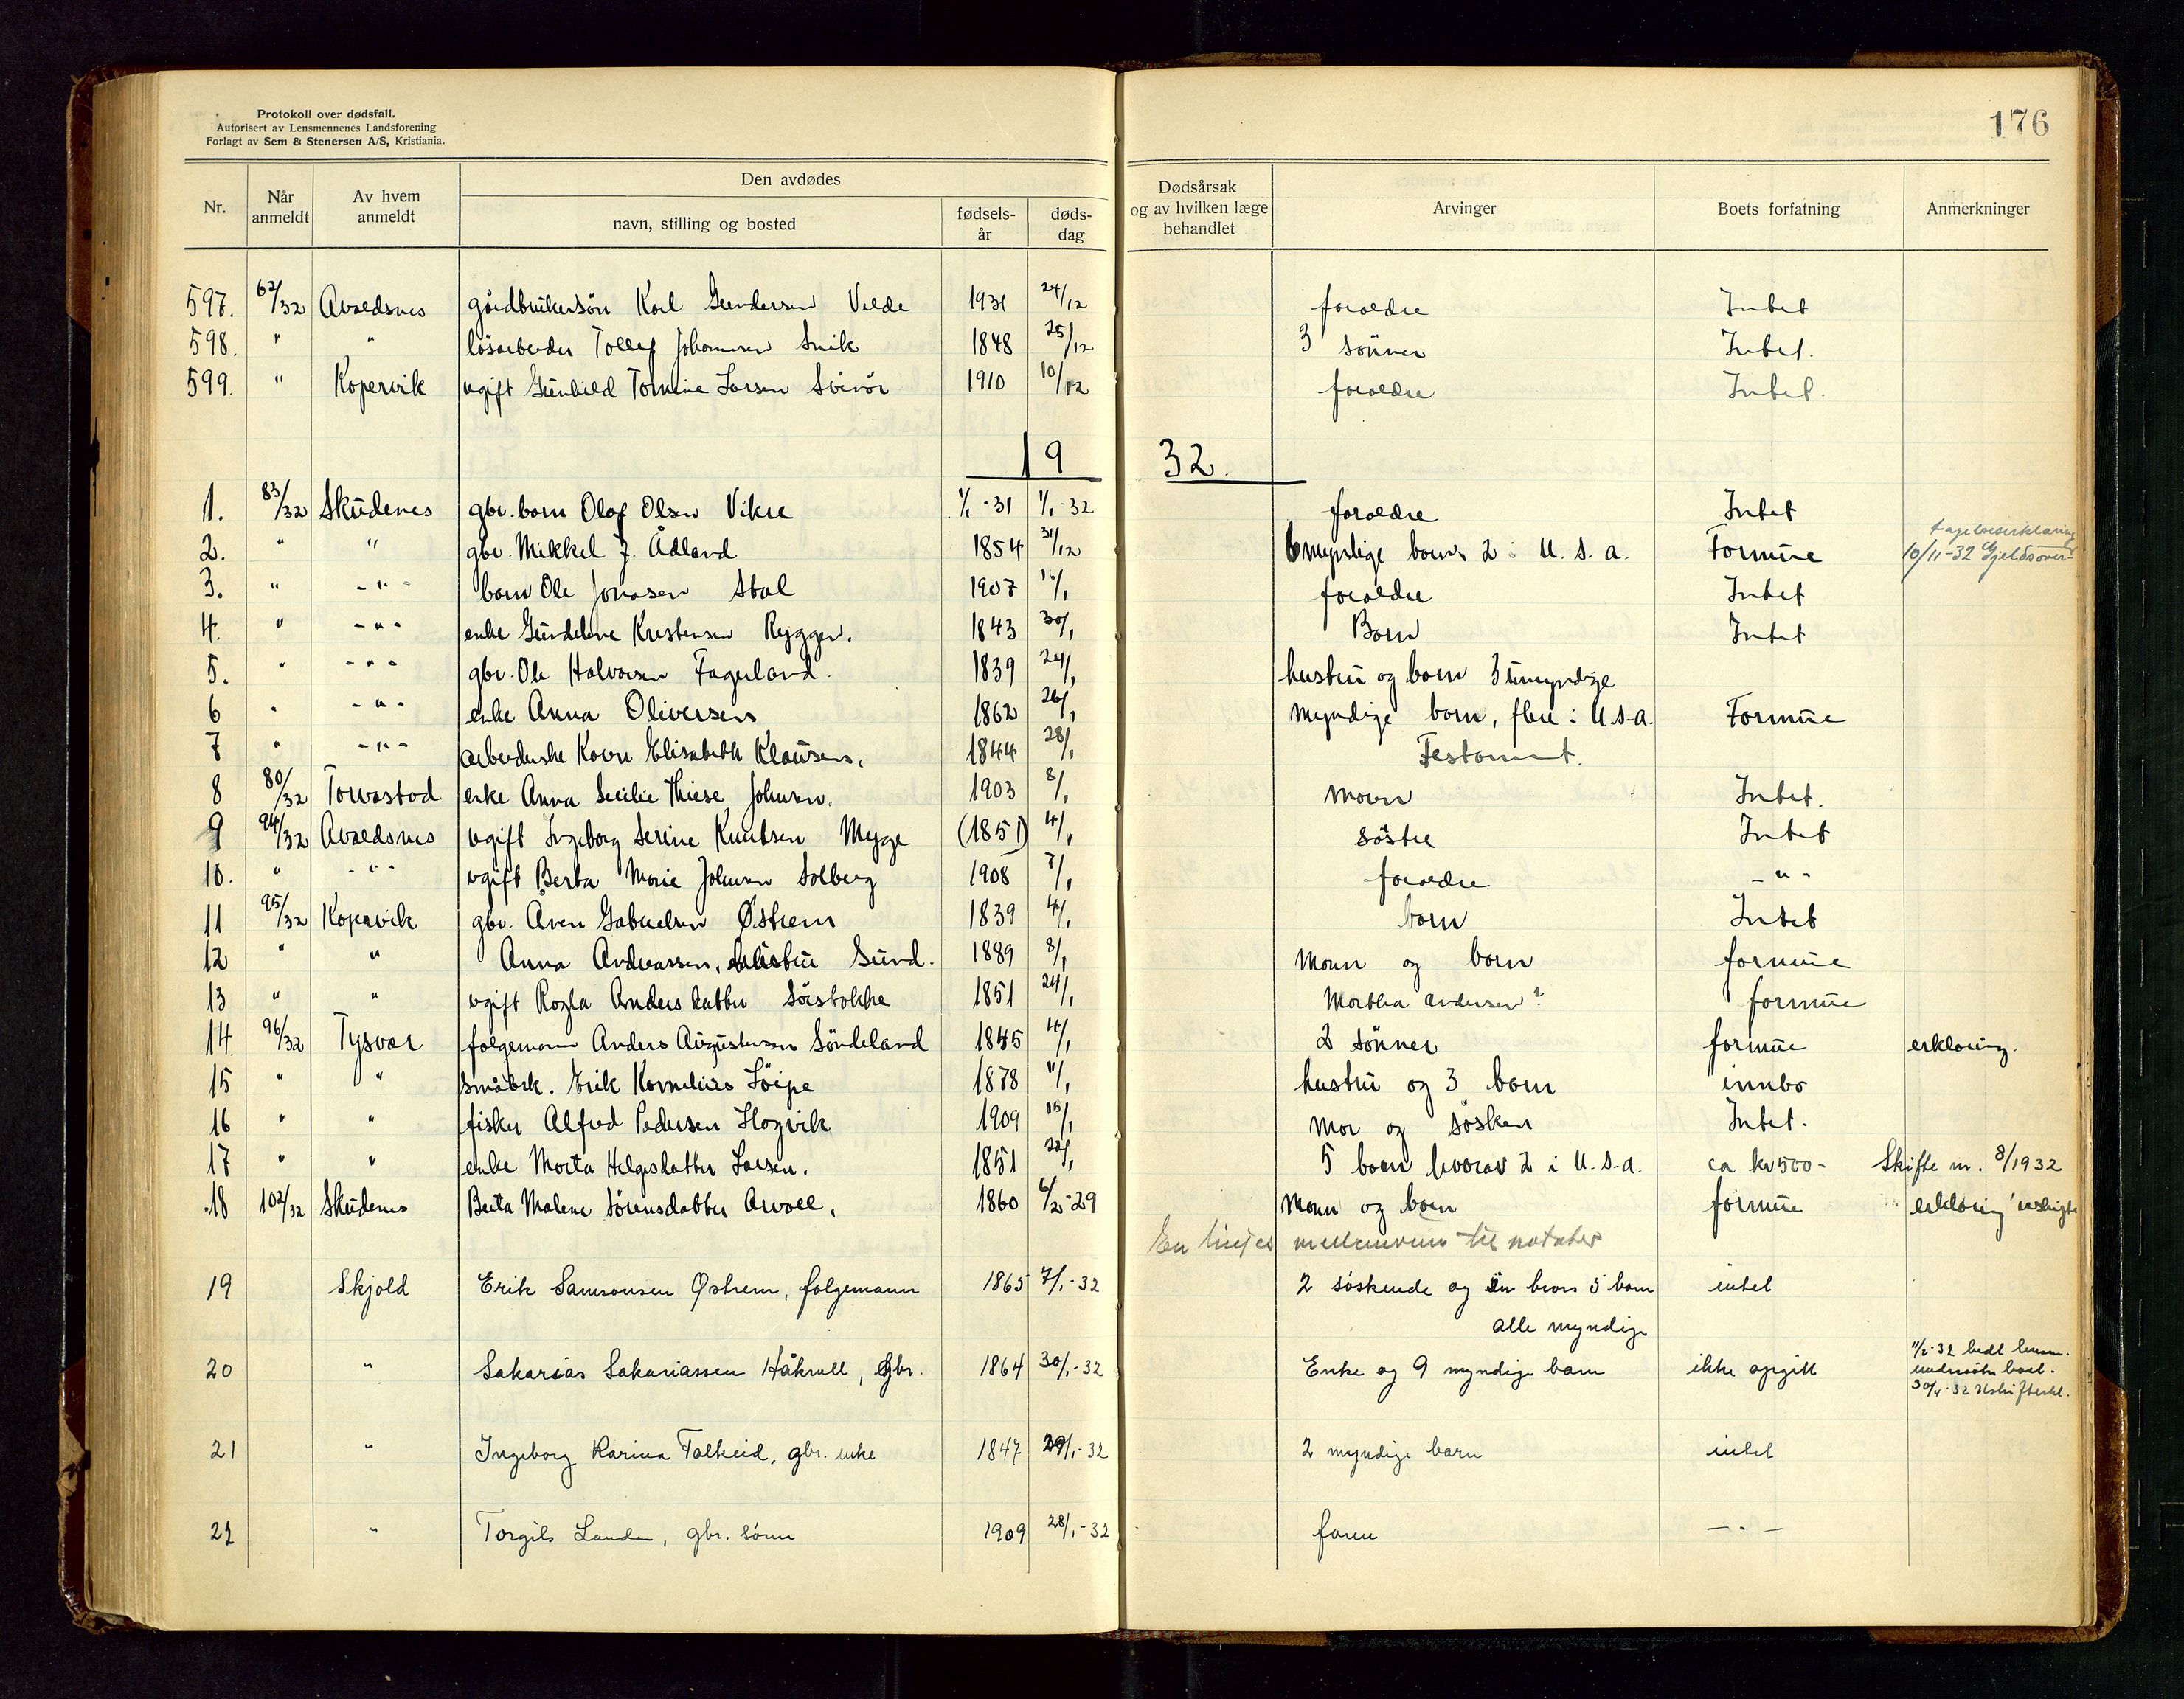 Protokoll over dødsfall.
Autorisert av Lensmennenes Landsforening
Forlagt av Sem & Stenersen A/S, Kristiania.
176
Nr. Når anmeldt Av hvem anmeldt Den avdødes navn, stilling og bosted fødsels-år døds-dag Dødsårsak og av hvilken læge behandlet Arvinger Boets forfatning Anmerkninger
597. 62/32 Avaldsnes gårdbrukersön Karl Gundersen Velde 1931 24/12 foreldre Intet
598. " " lösarbeider Tollef Johannesen Snik 1848 25/12 3 sönner Intet.
599. " Kopervik ugift Gunhild Tomine Larsen 1910 10/12 foreldre Intet.
1932.
1. 83/32 Skudenes gbr. barn Olaf Olsen Vikre 1/1-31 1/1-32 foreldre Intet
2. " " gbr. Mikkel J. Ådland 1854 31/12 6 myndige barn 2 i U.S.A. Formue 10/11-32 Gjeldsover-
tagelseserklæring
3. " - " - barn Ole Jonasen Stol 1907 16/1 foreldre Intet
4. " - " - enke Gundelene Kristensen Ryggen. 1843 30/1 Barn Intet
5. " - " - gbr. Ole Halvorsen Fageland. 1839 24/1 hustru og barn 3 umyndige
6 " - " - enke Anna Oliversen 1862 26/1 myndige barn, flere i U.S.A. Formue
7 " - " - arbeiderske Karen Elisabeth Klausen. 1844 28/1 Testament.
8 80/32 Torvastad enke Anna Secilie Johnsen. 1903 8/1 moren Intet.
9 94/32 Avaldsnes ugift Ingeborg Serine Knutsen Myge (1851) 4/1 söstre Intet
10. " - " - ugift Berta Marie Johnsen Solberg 1908 7/1 foreldre - " -
11 95/32 Kopervik gbr. Aven Gabrielsen Østrem 1839 4/1 barn Intet
12 " " Anna Andreassen, hustru Sund. 1889 8/1 Mann og barn formue
13 " " ugift Rogla Andersdatter Sörstokke 1851 24/1 Martha Andersen? formue
14 96/32 Tysvær folgemann Anders Augustinsen Söndeland 1845 4/1 2 sönner formue erklæring.
15 " " småbrk. Erik Kornelius 1878 11/1 hustru og 3 barn innbo
16 " " fisker Alfred Pedersen Hogvik 1909 15/1 mor og sösken Intet.
17 " " enke Marta Helgesdatter Larsen. 1851 22/1 5 barn hvorav 2 i U.S.A. ca kr 500- Skifte nr. 8/1932
18 102/32 Skudenes Berta Malene Sörensdatter Arvoll. 1860 6/2-29 Mann og barn formue erklæring
En linjes mellemrum til notater
19 Skjold Erik Samsonsen Østrem, folgemann 1865 7/1-32 2 søskende og én brors 5 barn intet
alle myndige
20 " Sakarias Sakariassen Håkrull, gbr. 1864 30/1-32 Enke og 9 myndige barn ikke opgitt 11/2-32 bedt lensm.
undersøke boet.
30/4-32 Uskifteerkl.
21 " Ingeborg Karina Falkeid, gbr. enke 1847 29/1-32 2 myndige barn intet
22 " Torgils Landa, gbr. sønn 1909 28/1-32 faren - " -